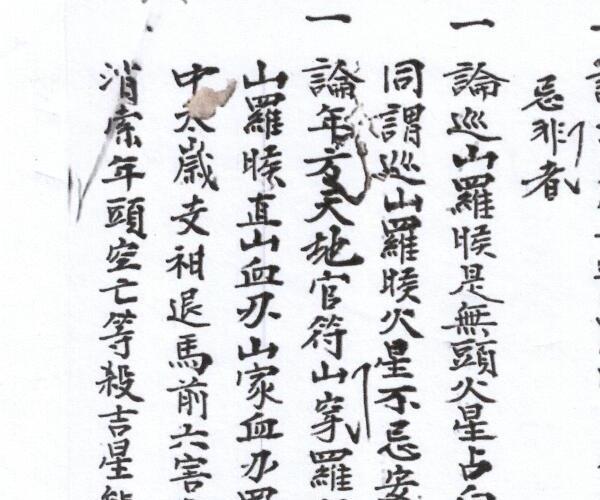 忌非者
一論巡山羅睺是無頭火星占
同謂巡山羅睺火星不忌安
一論年方天地官符山穿羅
山羅睺直山血刃山家血刃
中太歲支神退馬前六害
消索年頭空亡等殺吉星